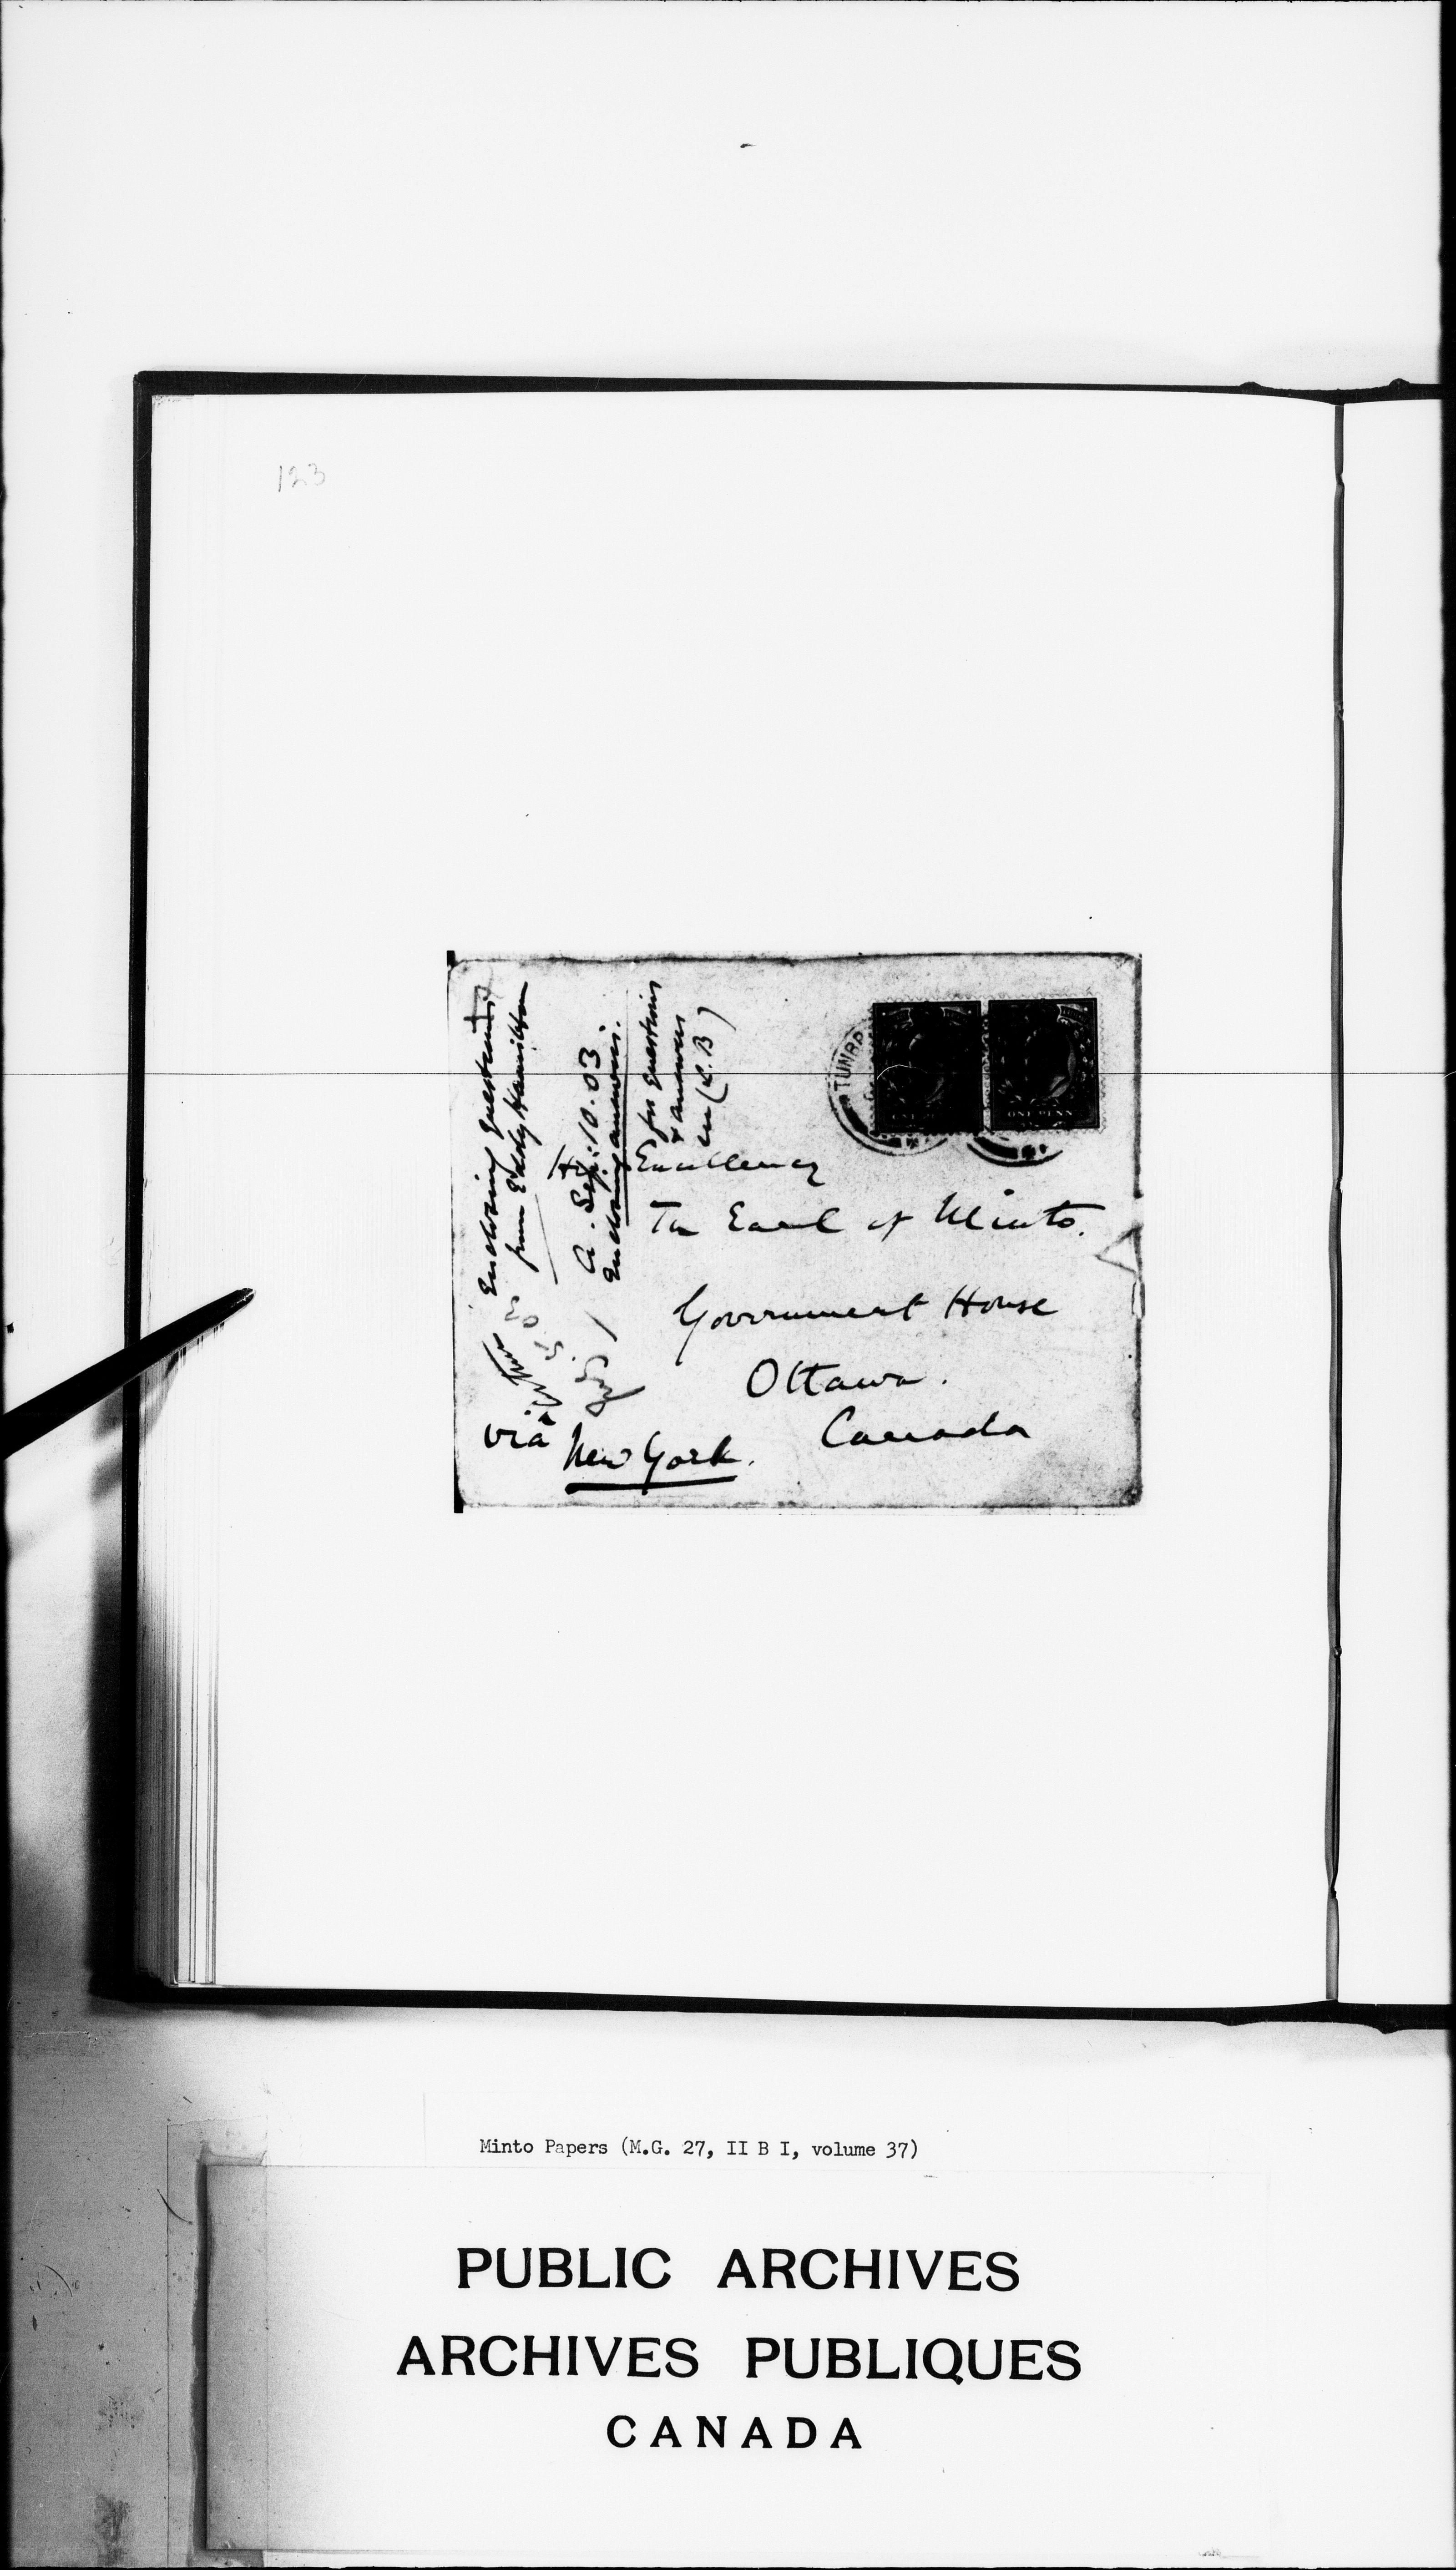 123
Enclosing questions
from E. Hamilton
A. Sep: 10.03.
Enclosing answers.
for questions
& answers
see (L.B)
TUNBR
ONE PENNY
His Excellency
The Earl of Minto.
Government House
Ottawa.
Canada
Arthur
5.03
via New York.
Minto Papers (M.G. 27, II B I, volume 37)
PUBLIC ARCHIVES
ARCHIVES PUBLIQUES
CANADA